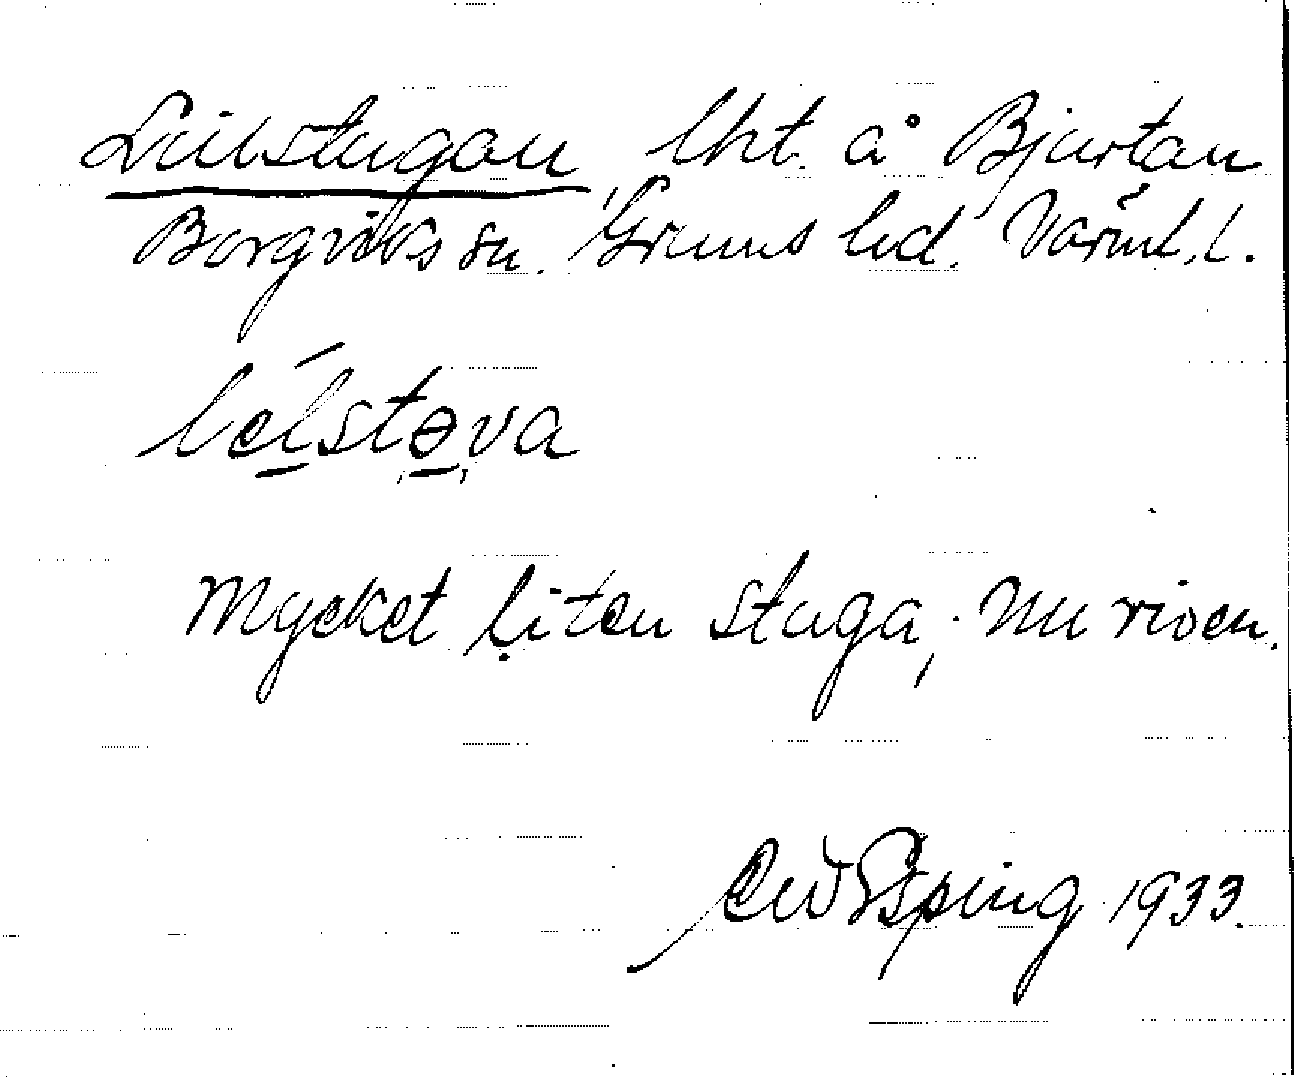 Lillstugan, lht. å Bjurtan
Borgviks sn. Grums hd. Värml. l.
lélstəva
Mycket liten stuga, nu riven.
Esping 1933.